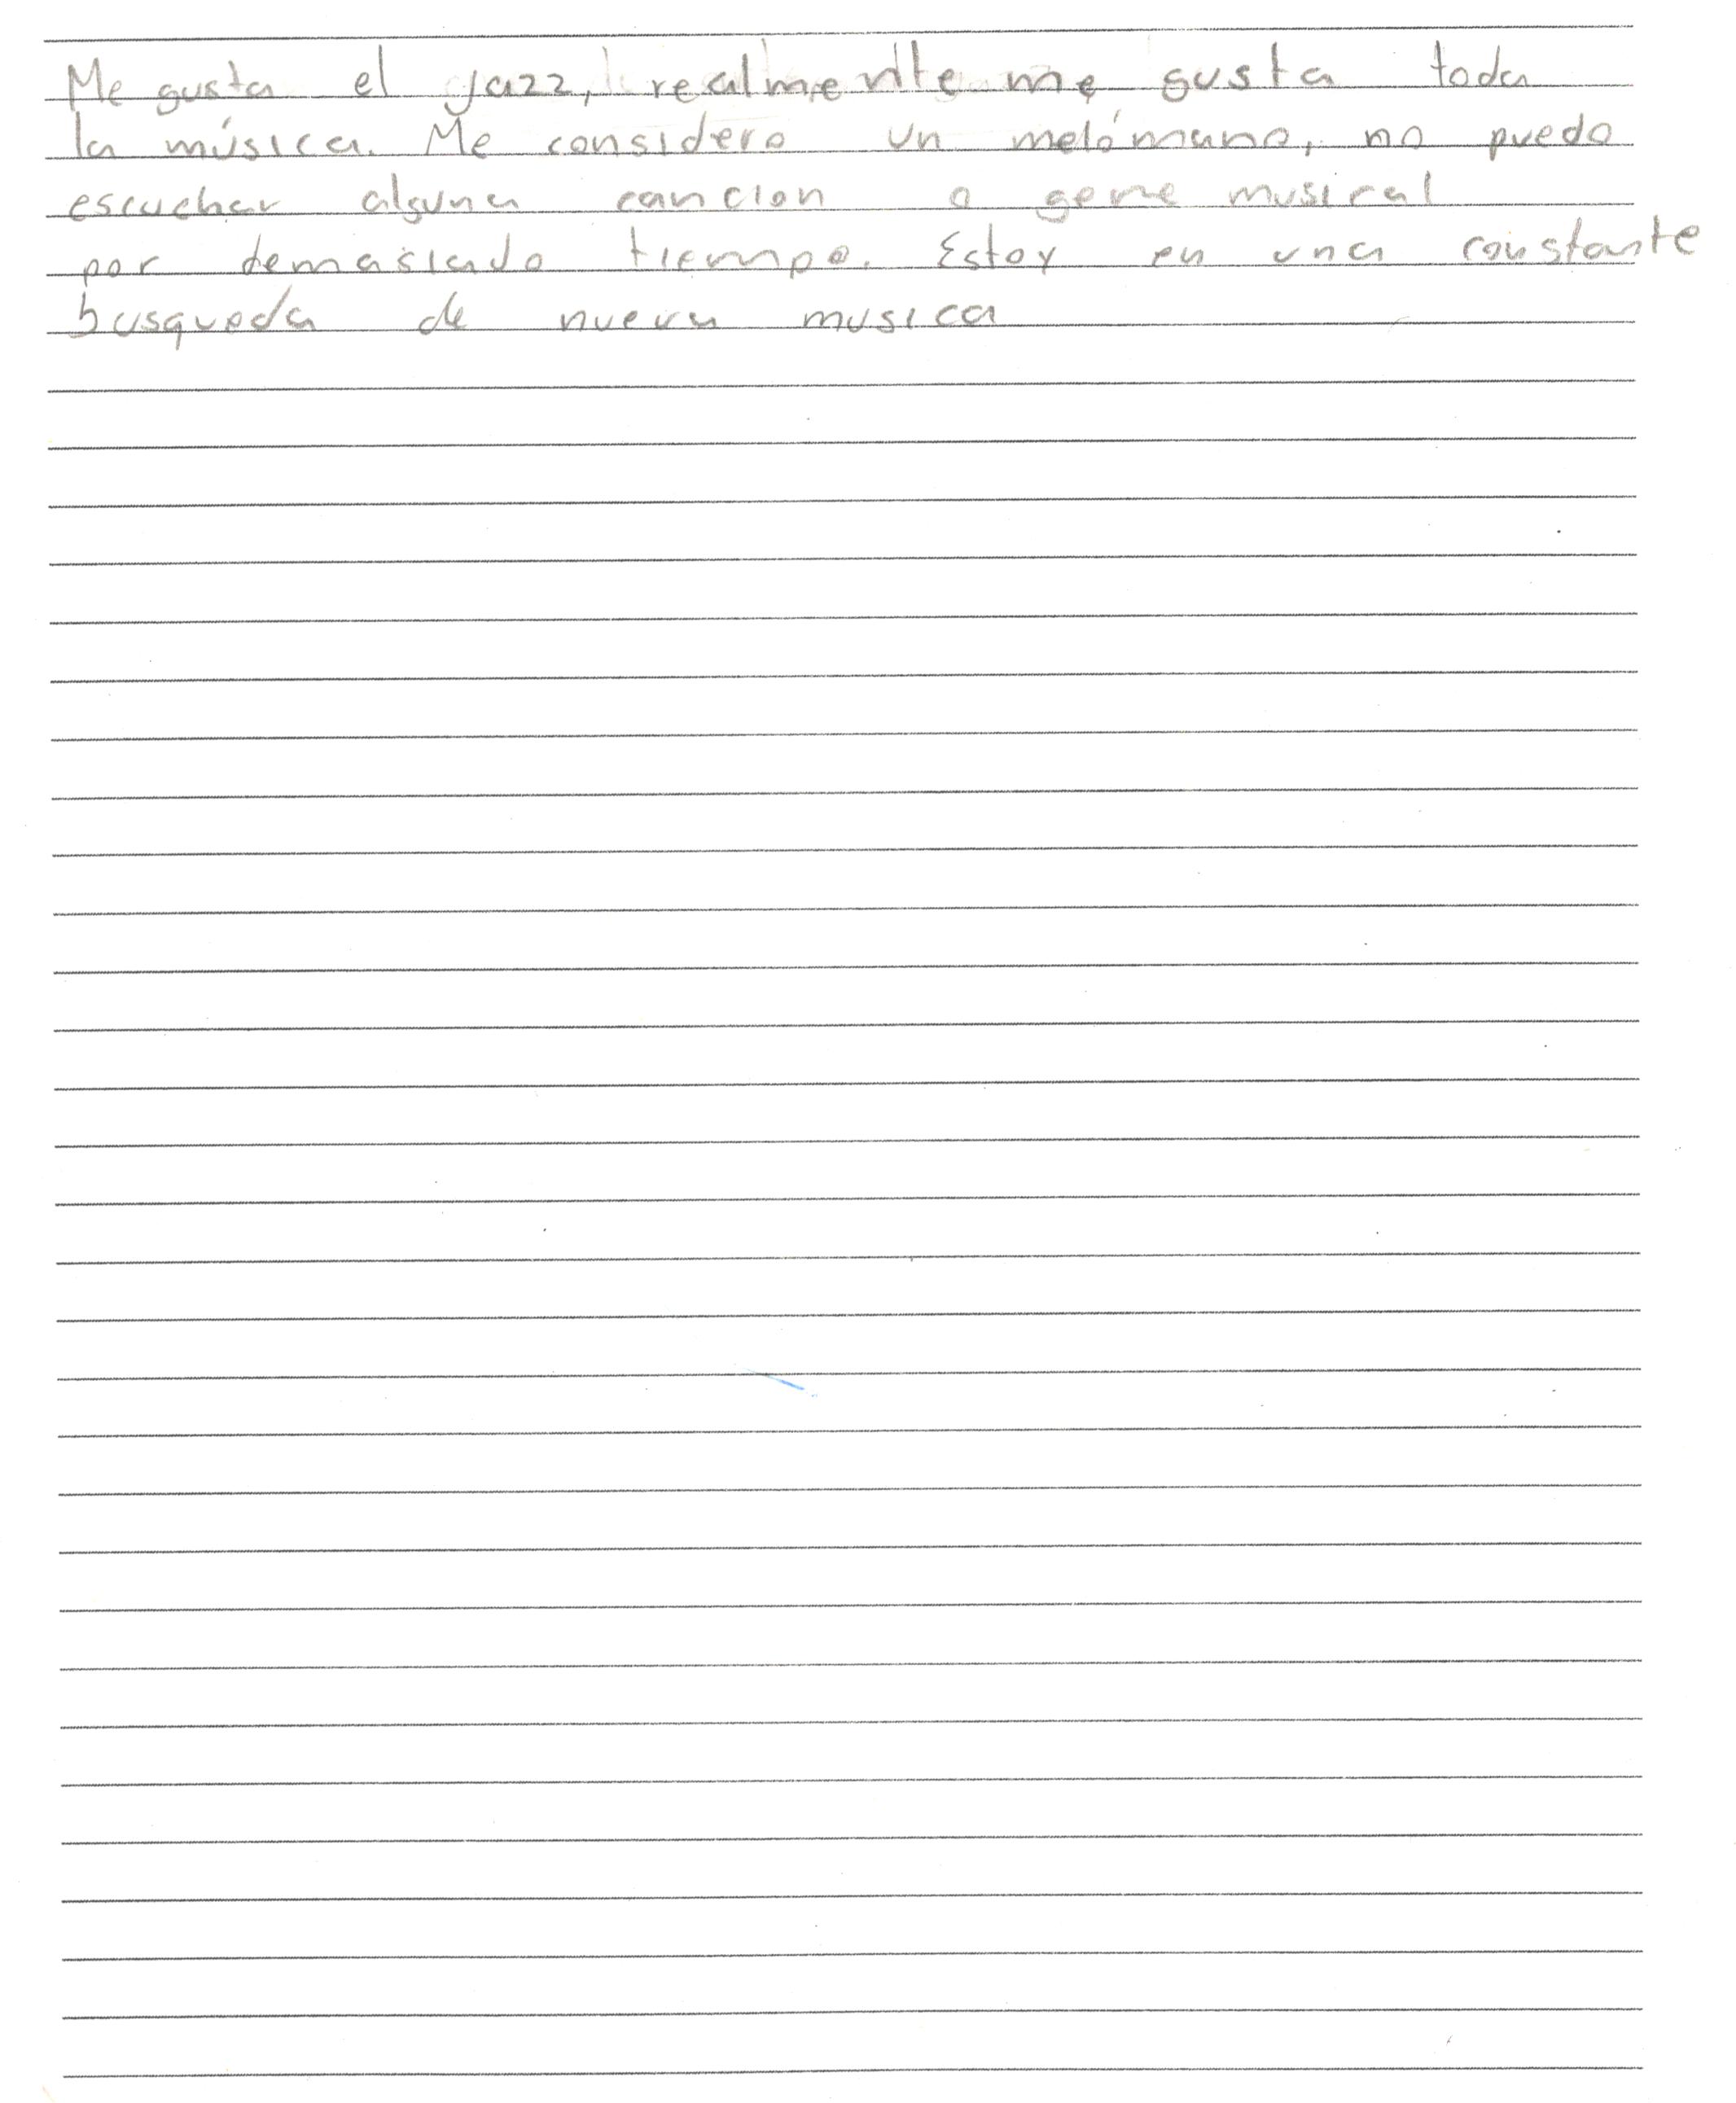 Me gusta el jazz, realmente me gusta toda
la música. Me considero un melómano, no puedo
escuchar alguna cancion o gene musical
por demasiado tiempo. Estoy en una constante
busqueda de nueva musica